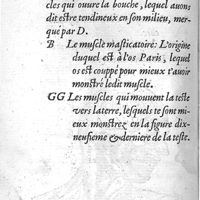 cles qui ouure la bouche, lequel auons
dit estre tendineux en son milieu, mer-
que par D.
B Le muscle masticatoire: L'origine
duquel est à l'os Paris, lequel
os est couppé pour mieux t'auoir
monstré ledit muscle.
GG Les muscles qui mouuent la teste
vers laterre, lesquels te sont mi-
eux monstrez en la figure dix-
neufiesme & derniere de la teste.